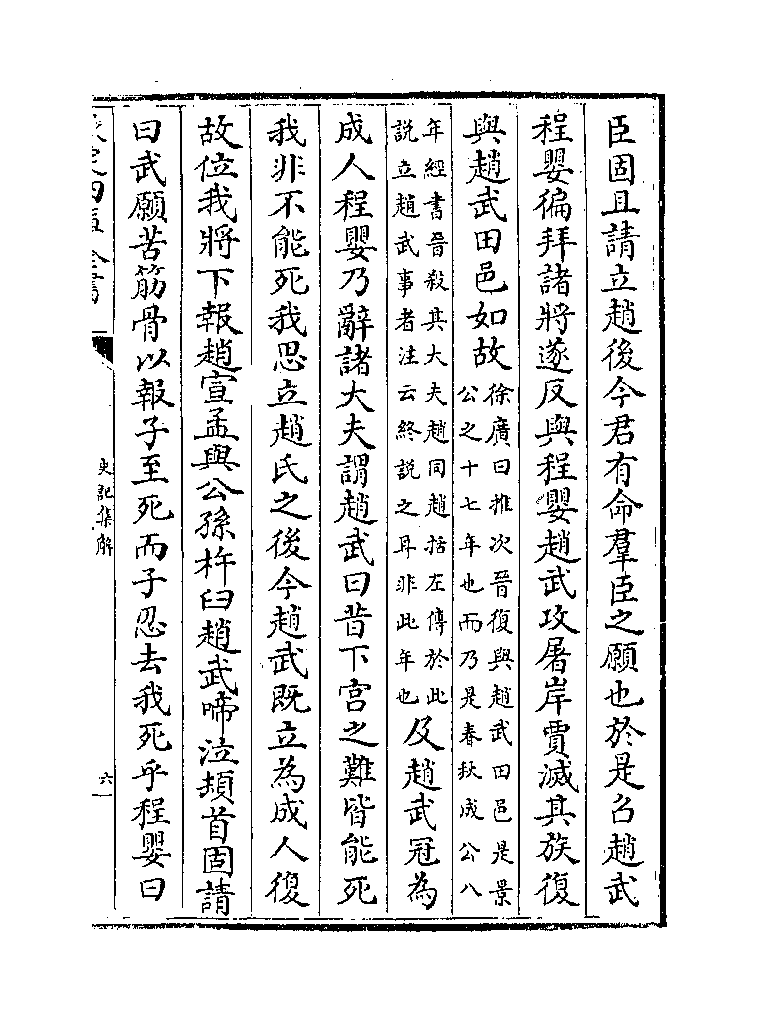 臣固且請立趙後今君有命羣臣之願也於是召趙武
程嬰徧拜諸將遂反與程嬰趙武攻屠岸賈滅其族復
與趙武田邑如故
徐廣曰推次晉復與趙武田邑是景
公之十七年也而乃是春秋成公八
年經書晉殺其大夫趙同趙括左傳於此
說立趙武事者注云終說之耳非此年也
及趙武冠為
成人程嬰乃辭諸大夫謂趙武曰昔下宮之難皆能死
我非不能死我思立趙氏之後今趙武既立為成人復
故位我將下報趙宣孟與公孫杵臼趙武啼泣頓首固請
曰武願苦筋骨以報子至死而子忍去我死乎程嬰曰
欽定四庫全書
史記集解
六